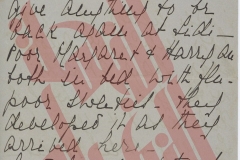 give anything to be
back again at Sidi -
Poor Margaret & Harry are
both in bed with flu -
poor sweeties - they
developed it as they
arrived here